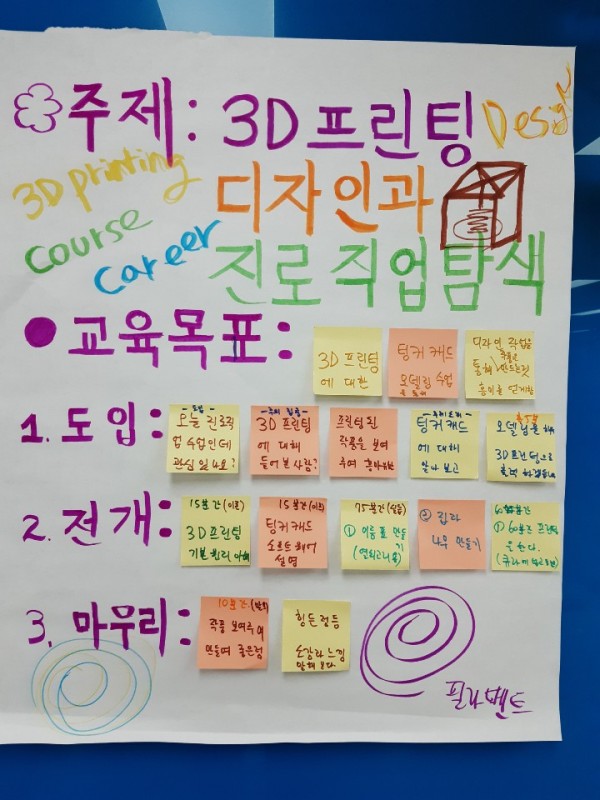 주제: 3D프린팅
Design
3D printing
디자인과
Course
Career
진로직업탐색
교육목표:
3D 프린팅
에 대한
팅커캐드
모델링 수업
디자인 작업을
통해 만드는것
흥미를
1. 도입:
오늘 진로직
업 수업인데
관심 있나요?
3D 프린팅
에 대해
들어본 사람?
프린팅 된
작품을 보여
주며
팅커캐드
에 대해
알아보고
모델링을
3D프린팅으로
출력 하겠습니다
2. 전개:
15분간(이론)
3D프린팅
기본 원리 이해
15분간(이론)
팅커캐드
소프트웨어
설명
75분간(실습)
① 이름표 만들
기
② 집과
나무 만들기
60분간
① 60분간 프린팅
을 한다.
3. 마무리:
10분간
작품 보여주며
만들며 좋은점
힘든점등
소감과 느낌
말해 본다
필라멘트